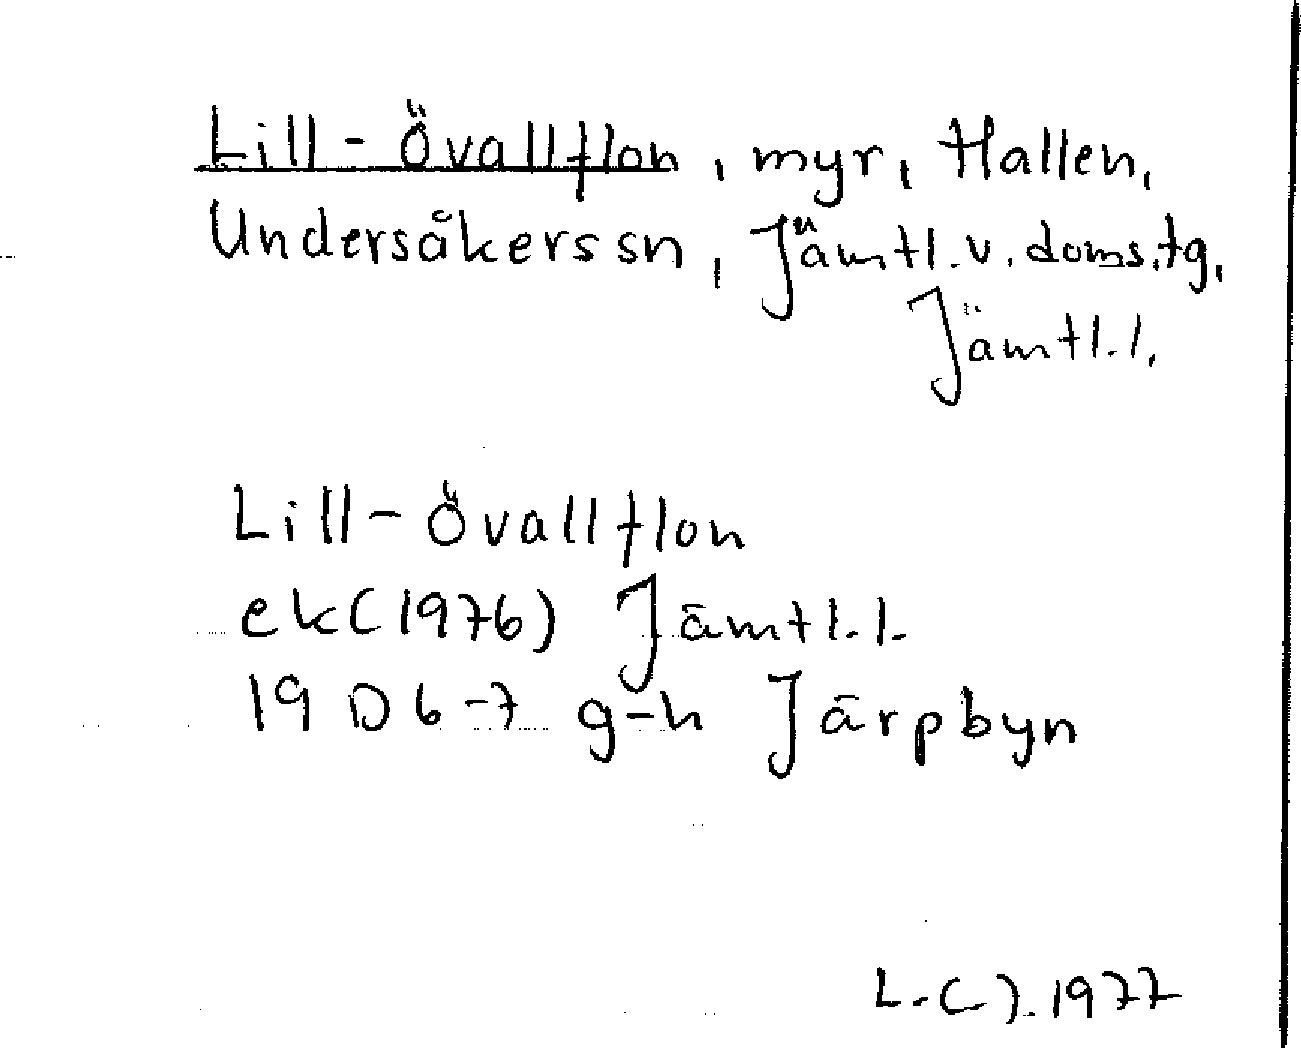 Lill-Övallflon, myr, Hallen,
Undersåkers sn, Jämtl. v. doms.tg,
Jämtl. l.
Lill-Övallflon
ek (1976) Jämtl. l.
19 D 6-7 g-h Järpbyn
L. C J. 1977